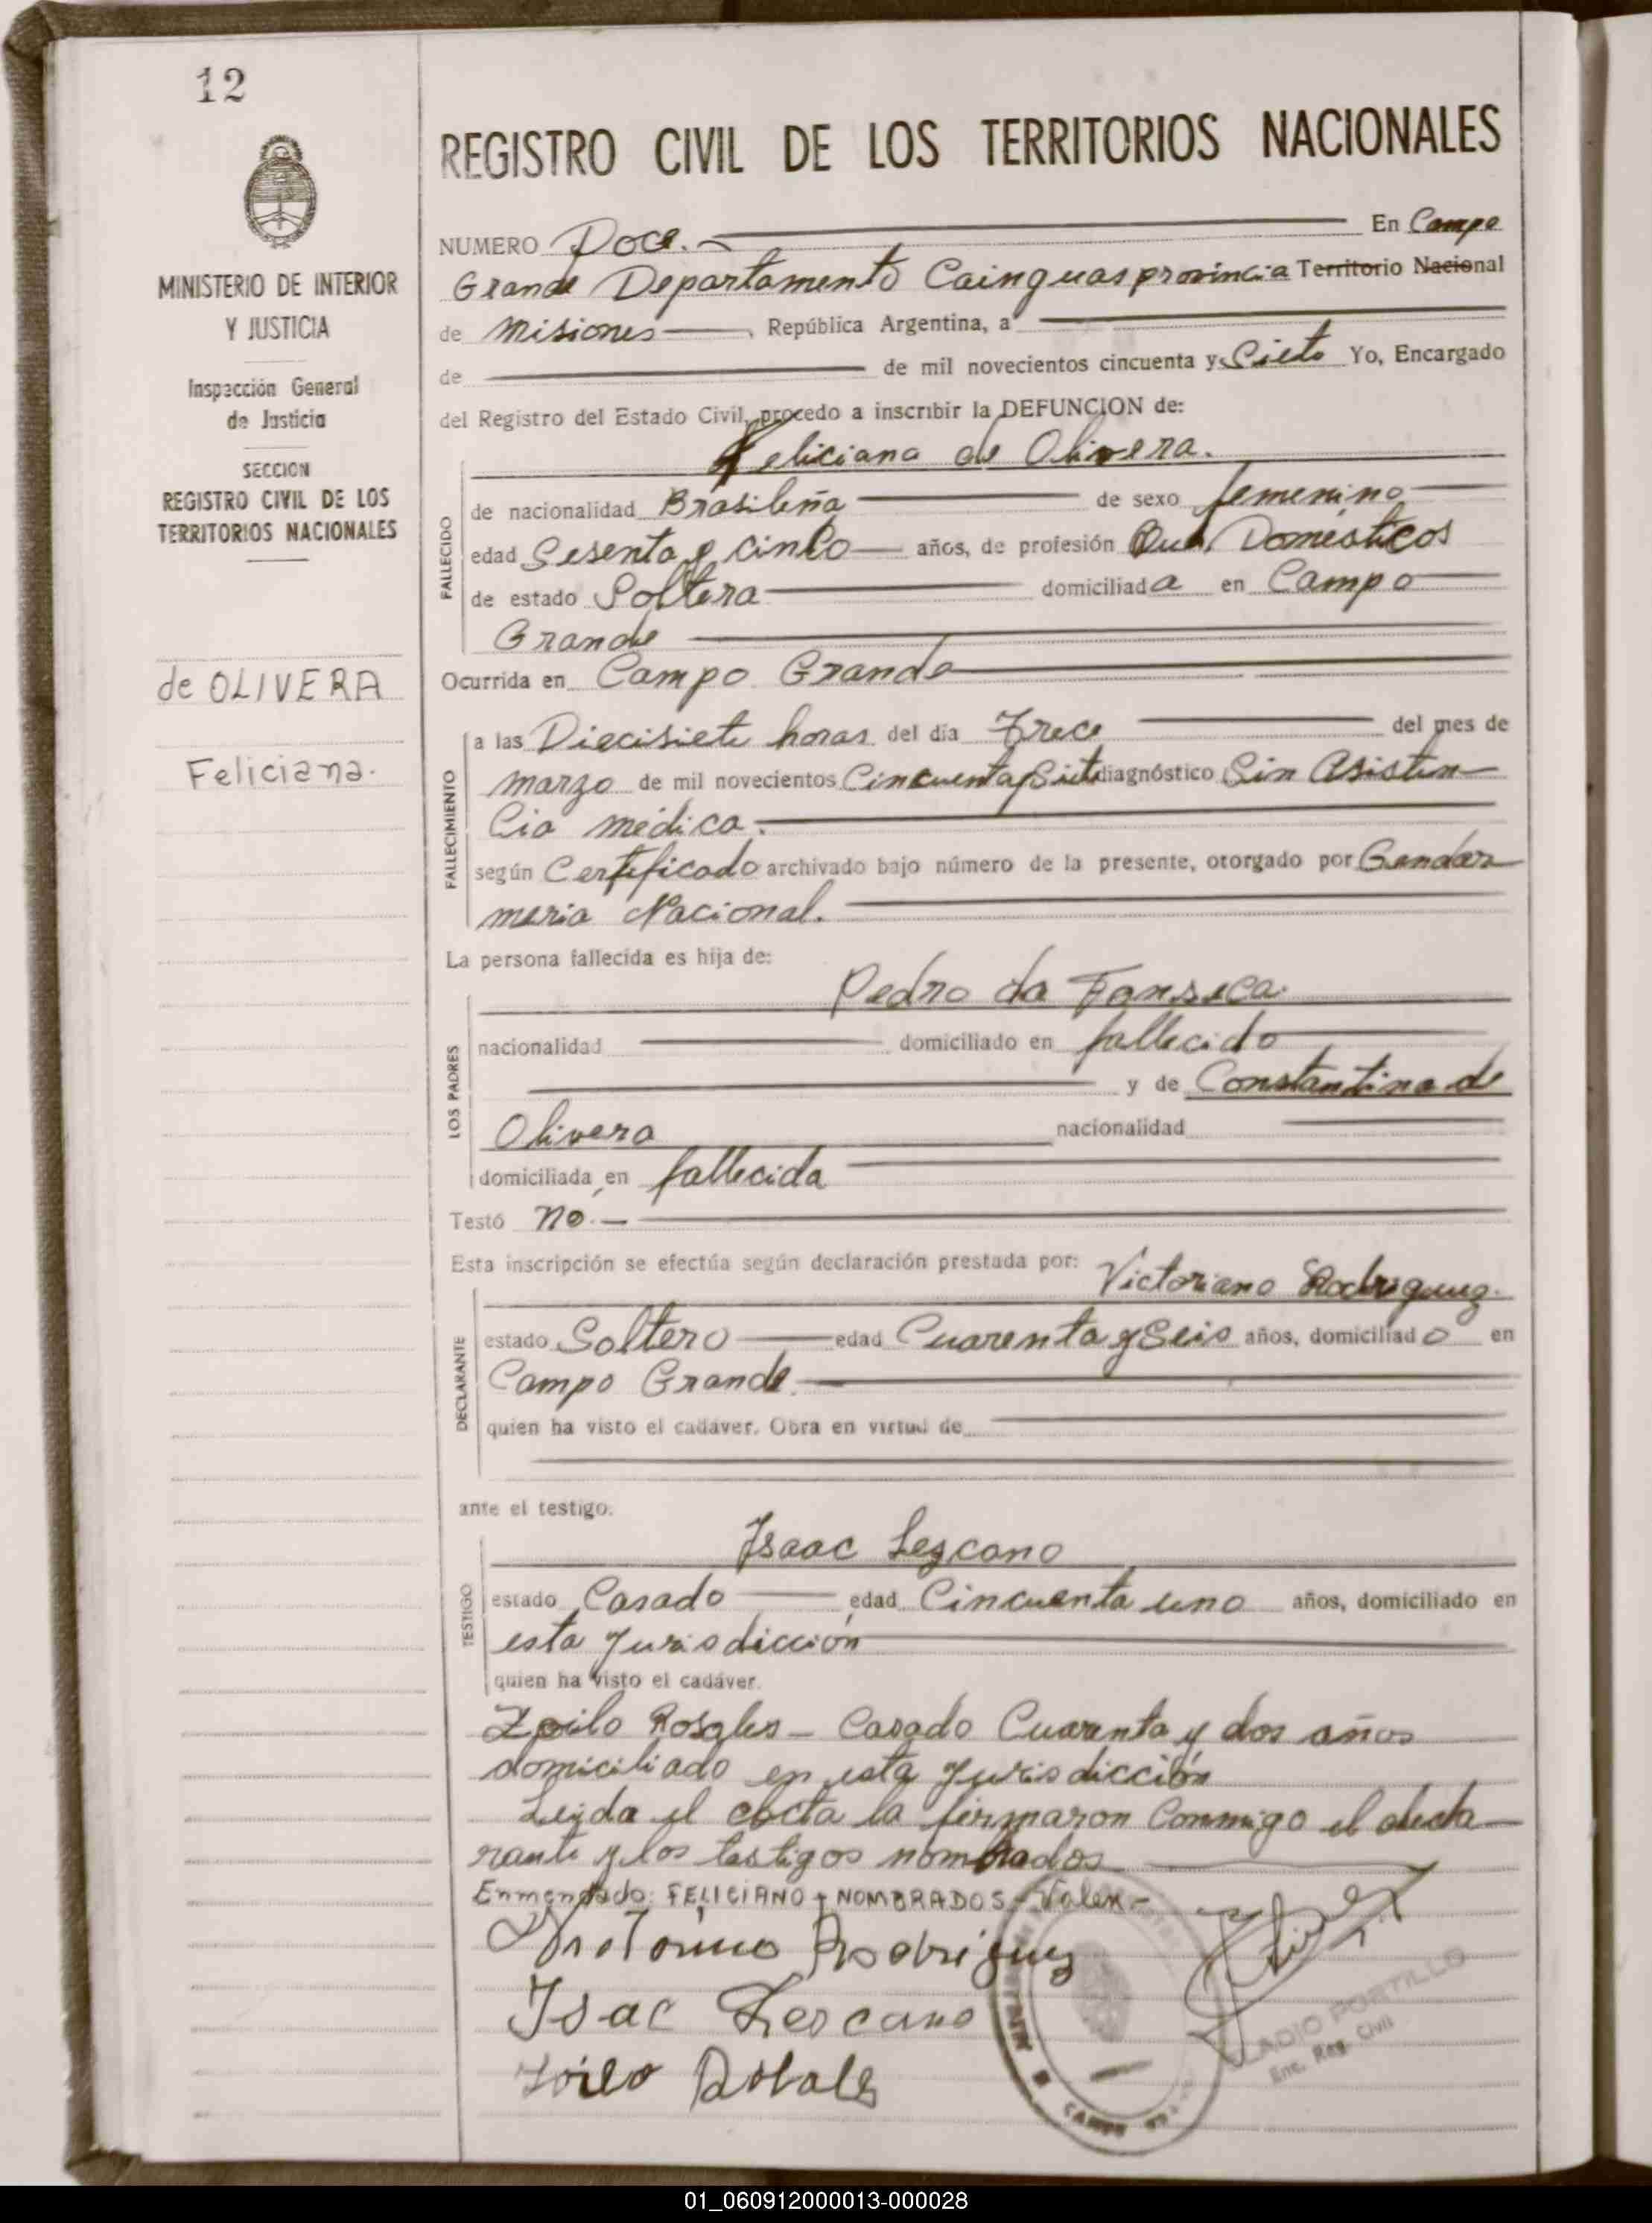 12
MINISTERIO DE INTERIOR
Y JUSTICIA
Inspección General
de Justicia
SECCION
REGISTRO CIVIL DE LOS
TERRITORIOS NACIONALES
de OLIVERA
Feliciana.
REGISTRO CIVIL DE LOS TERRITORIOS NACIONALES
NUMERO Doce. En Campo
Grande Departamento Cainguas provincia Territorio Nacional
de Misiones, República Argentina, a
de de mil novecientos cincuenta y Siete Yo, Encargado
del Registro del Estado Civil, procedo a inscribir la DEFUNCION de:
Feliciana de Olivera.
FALLECIDO
de nacionalidad Brasileña de sexo femenino
edad Sesenta y cinco años, de profesión Domésticos
de estado Soltera domiciliada en Campo
Grande
Ocurrida en Campo Grande
FALLECIMIENTO
a las Diecisiete horas del día Trece del mes de
marzo de mil novecientos Cincuenta y Siete diagnóstico Sin Asisten
cia médica.
según Certificado archivado bajo número de la presente, otorgado por Gendar
meria Nacional.
La persona fallecida es hija de:
LOS PADRES
Pedro da Fonseca.
nacionalidad domiciliado en fallecido
y de Constantina de
Olivera nacionalidad
domiciliada en fallecida
Testó no.-
Esta inscripción se efectúa según declaración prestada por: Victoriano Rodriguez.
DECLARANTE
estado Soltero edad Cuarenta y Seis años, domiciliado en
Campo Grande.
quien ha visto el cadáver. Obra en virtud de
ante el testigo.
TESTIGO
Isaac Lezcano
estado Casado edad Cincuenta uno años, domiciliado en
esta Jurisdicción
quien ha visto el cadáver.
Zoilo Rosales - Casado Cuarenta y dos años
domiciliado en esta Jurisdicción
Leida el acta la firmaron Conmigo el decla
rante y los testigos nombrados
Enmendado: FELICIANO y NOMBRADOS - Valen -
Victorino Rodriguez
Isac Lescano
Zoilo Rosales
LADIO PORTILLO
Enc. Reg. Civil
CAMPO
01_060912000013-000028